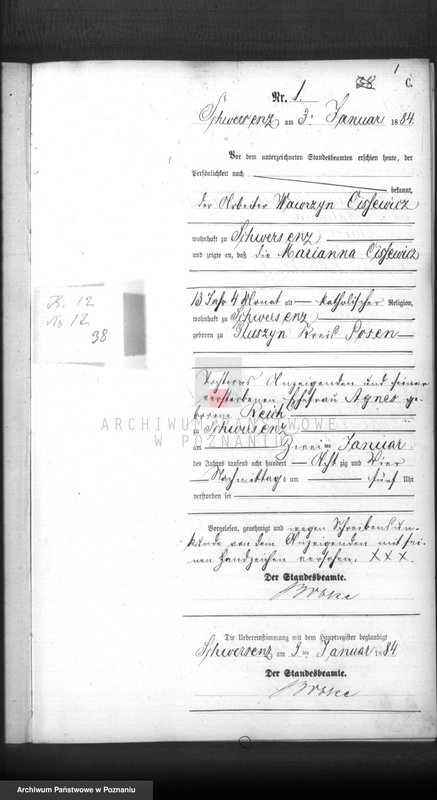 1
38 C.
Nr. 1.
Schwersenz am 3. Januar 1884.
Vor dem unterzeichneten Standesbeamten erschien heute, der
Persönlichkeit nach
bekannt,
der Arbeiter Wawrzyn Cissewicz
wohnhaft zu Schwersenz
und zeigte an, daß die Marianna Cissewicz
K. 12
No 12
38
13 Jahr 4 Monat alt katholischer Religion,
wohnhaft zu Schwersenz
geboren zu Gluszyn Kreis Posen
Tochter des Anzeigenden und seiner
verstorbenen Ehefrau Agnes ge-
borene Reich
ARCHIWUM PAŃSTWOWE
W POZNANIU
zu Schwersenz
am zwei ten Januar
des Jahres tausend acht hundert Acht zig und Vier
Nachmittags um fünf Uhr
verstorben sei
Vorgelesen, genehmigt und wegen Schreibensun-
kunde von dem Anzeigenden mit sei-
nen Handzeichen versehen. XXX.
Der Standesbeamte.
Die Uebereinstimmung mit dem Hauptregister beglaubigt
Schwersenz am 3 ten Januar 1884
Der Standesbeamte.
Archiwum Państwowe w Poznaniu